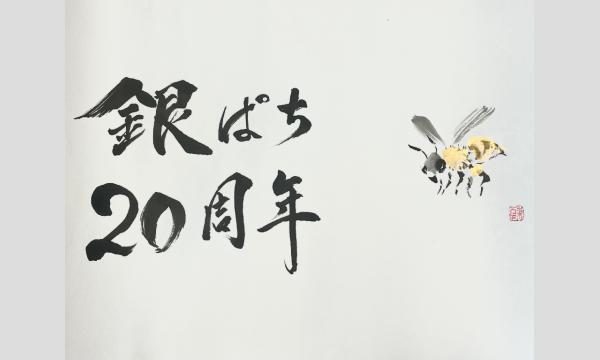 銀ぱち
20周年